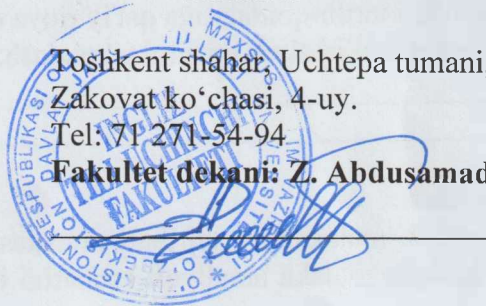 Toshkent shahar, Uchtepa tumani,
Zakovat ko‘chasi, 4-uy.
Tel: 71 271-54-94
Fakultet dekani: Z. Abdusamad
INGLIZ
FAKULTETI